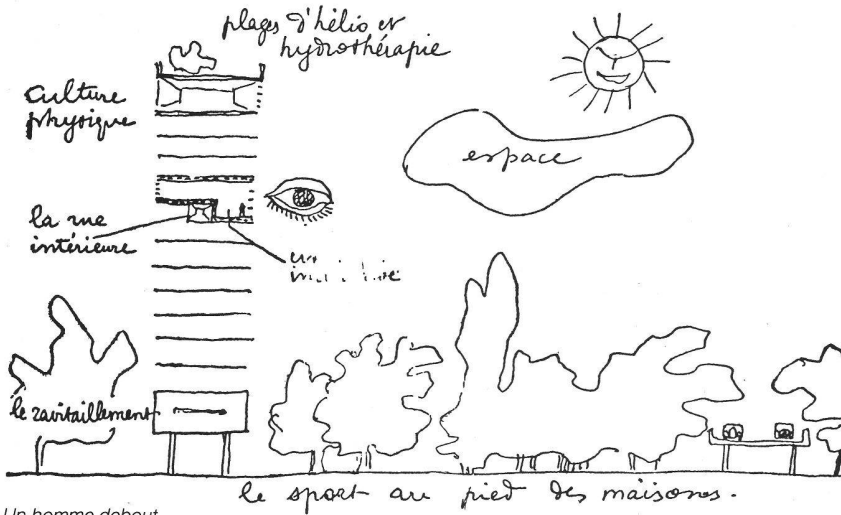 plages d'hélio et
hydrothérapie
culture
physique
espace
la rue
intérieure
un
le ravitaillement
le sport au pied des maisons.
Un homme debout